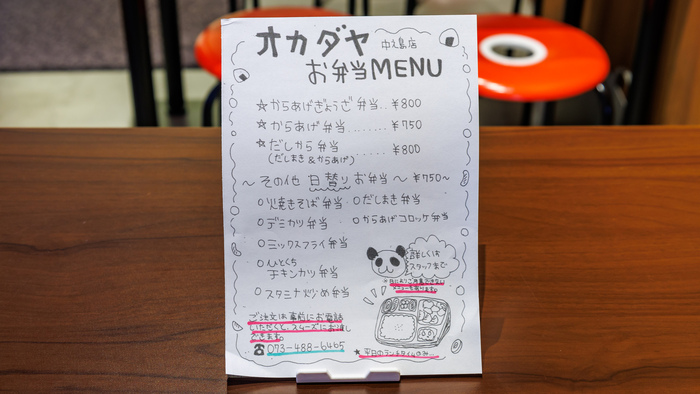 オカダヤ 中之島店
お弁当MENU
☆からあげぎょうざ弁当..¥800
☆からあげ弁当........¥750
☆だしから弁当.....¥800
(だしまき&からあげ)
〜その他 日替りお弁当〜¥750〜
○焼きそば弁当 ○だしまき弁当
○デミカツ弁当 ○からあげコロッケ弁当
○ミックスフライ弁当
○ひとくち
チキンカツ弁当
○スタミナ炒め弁当
詳しくは
スタッフまで
ご注文は事前にお電話
いただくと、スムーズにお渡し
できます。
☎073-488-6465
★平日のランチタイムのみ